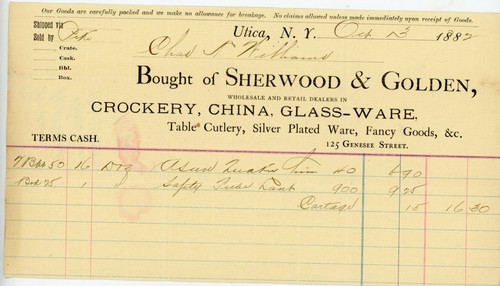 Our Goods are carefully packed and we make no allowance for breakage. No claims allowed unless made immediately upon receipt of Goods.
Shipped via
Utica, N. Y. Oct 23 1882
Sold by
Crate.
Chas N Williams
Cask.
Bbl.
Box.
Bought of SHERWOOD & GOLDEN,
WHOLESALE AND RETAIL DEALERS IN
CROCKERY, CHINA, GLASS-WARE,
Table Cutlery, Silver Plated Ware, Fancy Goods, &c.
TERMS CASH.
125 GENESEE STREET.
50 16 Doz 40 6 90
25 1 Safety Lant 900 9 25
Cartage 15 16 30